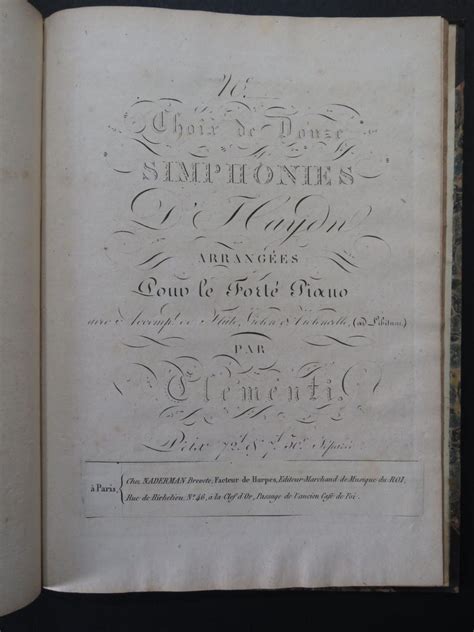 N°.
Choix de Douze
SIMPHONIES
D'Haydn
ARRANGÉES
Pour le Forté Piano
avec Accomp.t de Flûte, Violon & Violoncelle, (ad Libitum)
PAR
Clementi.
Prix
à Paris, Chez NADERMAN Breveté, Facteur de Harpes, Editeur Marchand de Musique du ROI,
Rue de Richelieu, N.° 46, à la Clef d'Or, Passage de l'ancien Café de Foi.